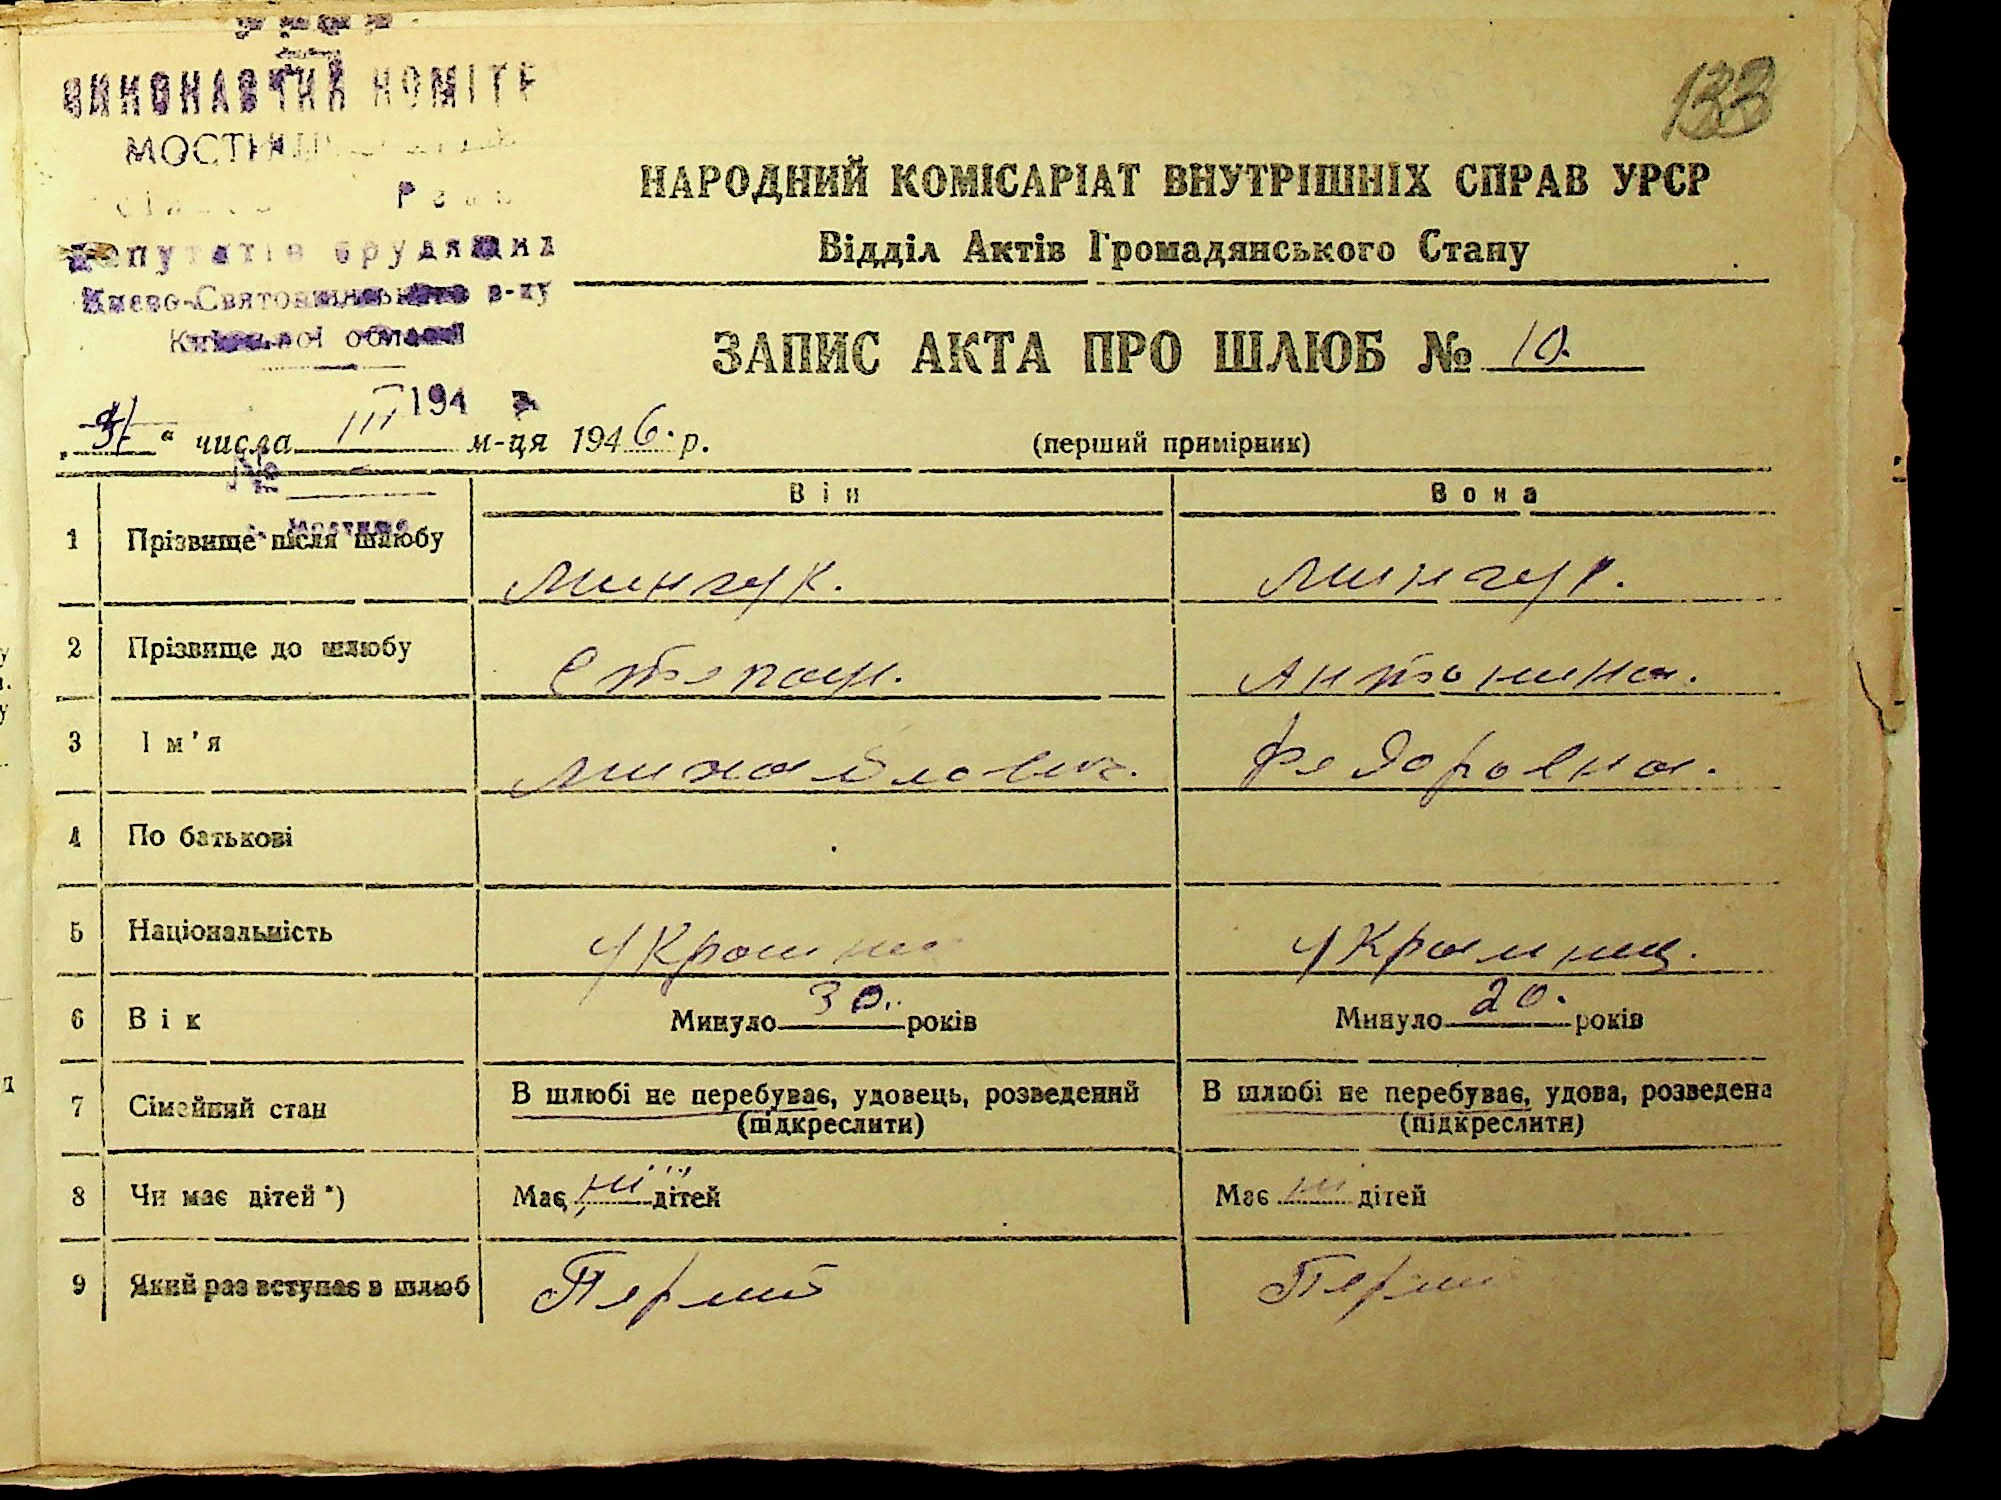 133
УРСР
ВИКОНАВЧИЙ КОМІТЕ
МОСТИЩ
депутатів трудящих
Києво-Святошинського р-ну
Київської області
194
НАРОДНИЙ КОМІСАРІАТ ВНУТРІШНІХ СПРАВ УРСР
Відділ Актів Громадянського Стану
ЗАПИС АКТА ПРО ШЛЮБ № 10.
„31“ числа III м-ця 1946. р.
(перший примірник)
№
Він Вона
1 Прізвище після шлюбу Минчук. Минчук.
2 Прізвище до шлюбу Степан. Антонина.
3 Ім'я Михайлович. Федоровна.
4 По батькові
5 Національність Украинец Украинец.
6 Вік Минуло 30. років Минуло 20. років
7 Сімейний стан В шлюбі не перебуває, удовець, розведений В шлюбі не перебуває, удова, розведена
(підкреслити) (підкреслити)
8 Чи має дітей *) Має ні дітей Має ні дітей
9 Який раз вступає в шлюб Перший Перший